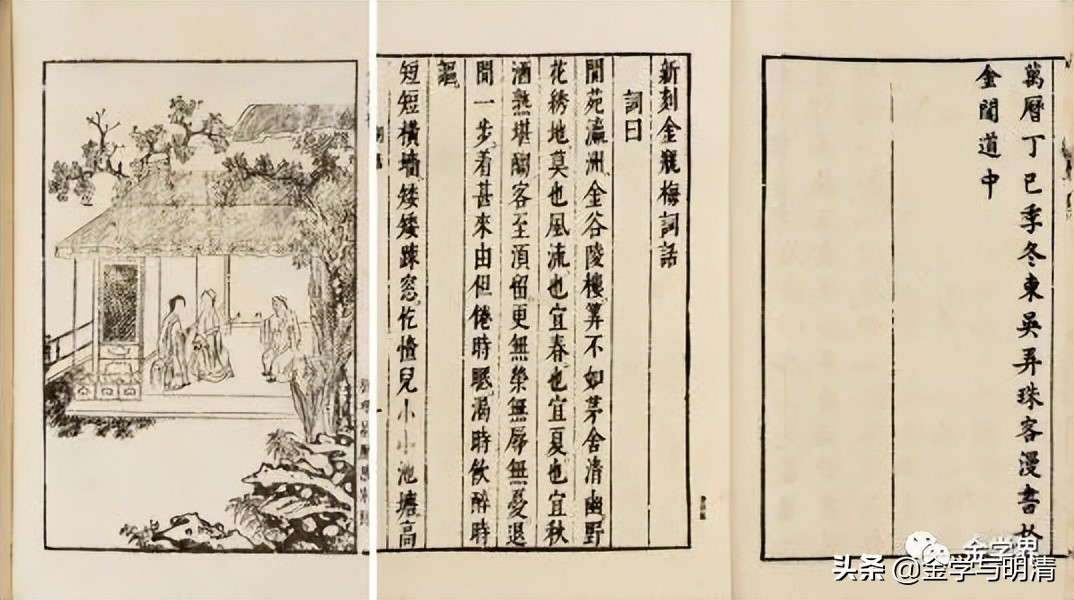 萬曆丁巳季冬東吳弄珠客漫書於
金閶道中
新刻金瓶梅詞話
詞曰
閬苑瀛洲金谷陵樓筭不如茅舍清幽野
花綉地莫也風流也宜春也宜夏也宜秋
酒熟堪酌客至湏留更無榮無辱無憂退
閒一步着甚來由但倦時眠渴時飲醉時
謳
短短橫墻矮矮踈窓忔憎兒小小池塘高
金学界
头条 @金学与明清